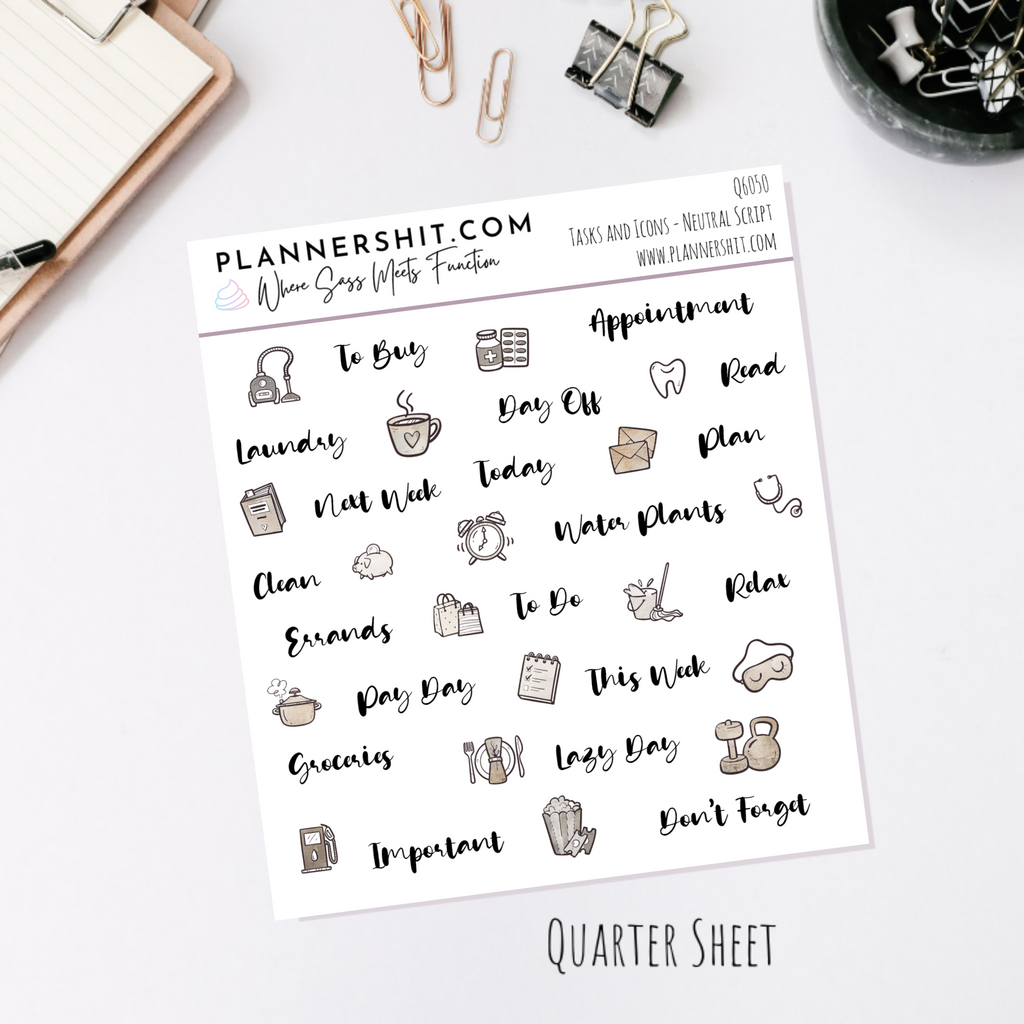 PLANNERSHIT.COM
Where Sass Meets Function
Q6050
Tasks and Icons - Neutral Script
www.plannershit.com
To Buy
Appointment
Laundry
Day Off
Read
Next Week
Today
Plan
Clean
Water Plants
Errands
To Do
Relax
Pay Day
This Week
Groceries
Lazy Day
Important
Don't Forget
Quarter Sheet